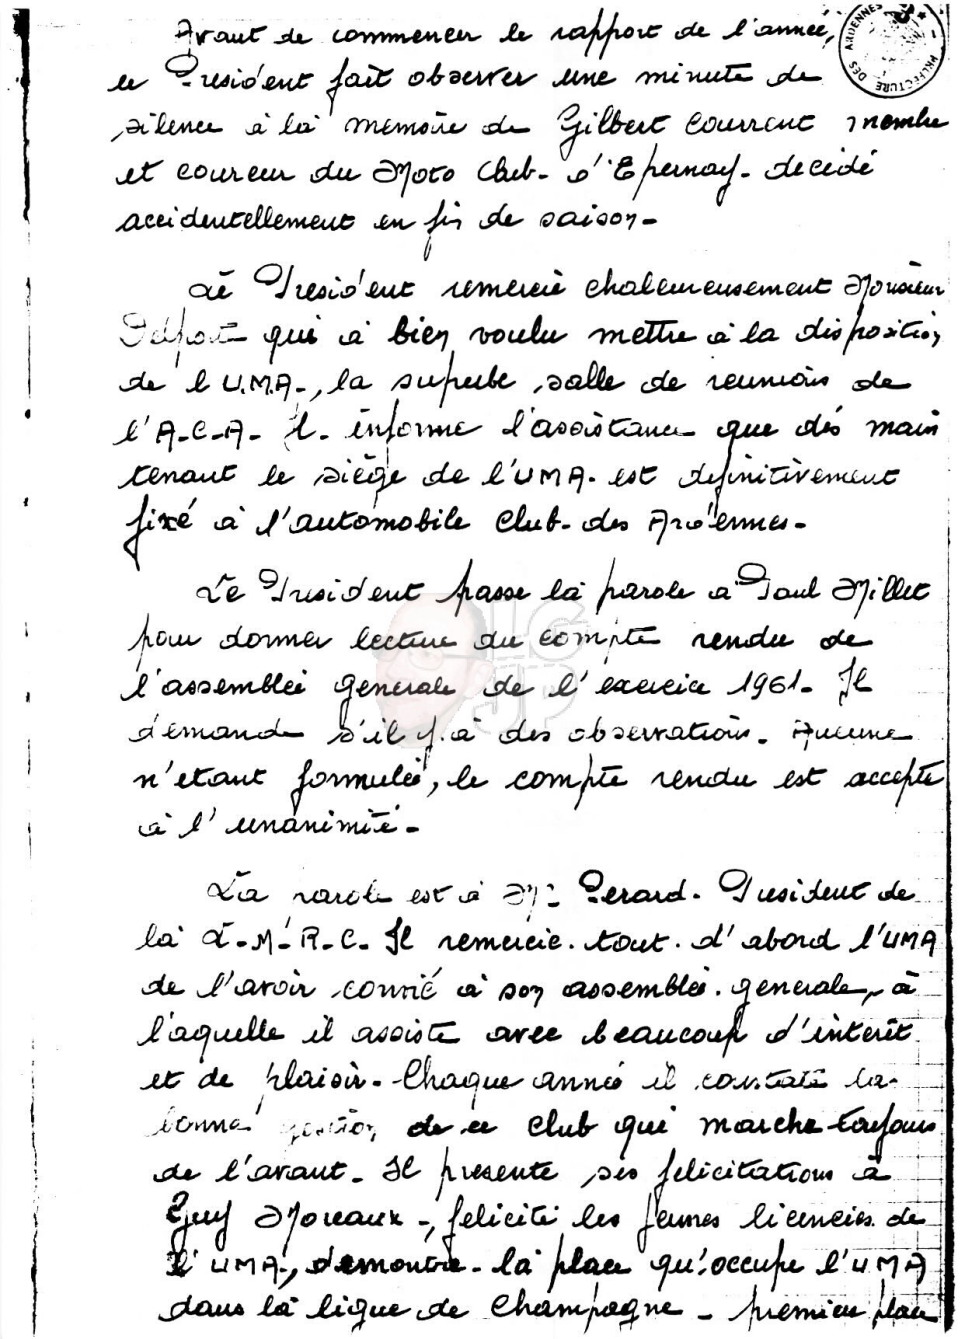 Avant de commencer le rapport de l'année,
le President fait observer une minute de
silence à la memoire de Gilbert Courrent membre
et coureur du Moto Club - d'Epernay - decedé
accidentellement en fin de saison -
Le President remercie chaleureusement Monsieur
Delport qui à bien voulu mettre à la disposition
de l'U.M.A -, la superbe salle de reunions de
l'A-C-A - Il - informe l'assistance que dés main
tenant le siège de l'UMA - est definitivement
fixé à l'automobile Club - des Ardennes -
Le President passe la parole à Paul Millet
pour donner lecture du compte rendu de
l'assemblée generale de l'exercice 1961 - Il
demande s'il y à des observations - Aucune
n'etant formulée, le compte rendu est accepte
à l'unanimité -
La parole est à Mr Gerard - President de
la L-M-R-C - Il remercie - tout - d'abord l'UMA
de l'avoir convié à son assemblée - generale, à
l'aquelle il assiste avec beaucoup d'interêt
et de plaisir - Chaque année il constate la -
bonne gestion de ce Club qui marche toujours
de l'avant - Il presente ses felicitations à
Guy Moreaux -, felicite les jeunes licencies de
l'UMA, demontre - la place qu'occupe l'UMA
dans la ligue de Champagne - premiere place
PREFECTURE DES ARDENNES
LG
JP